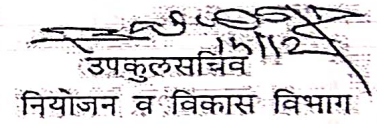 15/12
उपकुलसचिव
नियोजन व विकास विभाग